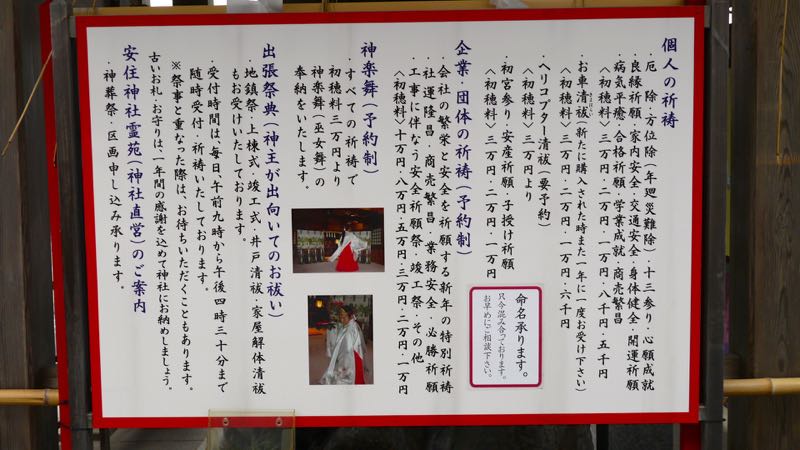 個人の祈祷
・厄　除・方位除（年廻災難除）・十三参り・心願成就
・良縁祈願・家内安全・交通安全・身体健全・開運祈願
・病気平癒・合格祈願・学業成就・商売繁昌
〈初穂料〉三万円・二万円・一万円・八千円・五千円
・お車清祓（新たに購入された時また一年に一度お受け下さい）
〈初穂料〉三万円・二万円・一万円・六千円
・ヘリコプター清祓（要予約）
〈初穂料〉三万円より
・初宮参り・安産祈願・子授け祈願
〈初穂料〉三万円・二万円・一万円
命名承ります。
只今混み合っております。
お早めにご相談下さい。
企業・団体の祈祷（予約制）
・会社の繁栄と安全を祈願する新年の特別祈祷
・社運隆昌・商売繁昌・業務安全・必勝祈願
・工事に伴なう安全祈願祭・竣工祭・その他
〈初穂料〉十万円・八万円・五万円・三万円・二万円・一万円
神楽舞（予約制）
・すべての祈祷で
初穂料三万円より
神楽舞（巫女舞）の
奉納をいたします。
出張祭典（神主が出向いてのお祓い）
・地鎮祭・上棟式・竣工式・井戸清祓・家屋解体清祓
もお受けいたしております。
・受付時間は毎日、午前九時から午後四時三十分まで
随時受付・祈祷いたしております。
※祭事と重なった際は、お待ちいただくこともあります。
古いお札・お守りは、一年間の感謝を込めて神社にお納めしましょう。
安住神社霊苑（神社直営）のご案内
・神葬祭・区画申し込み承ります。